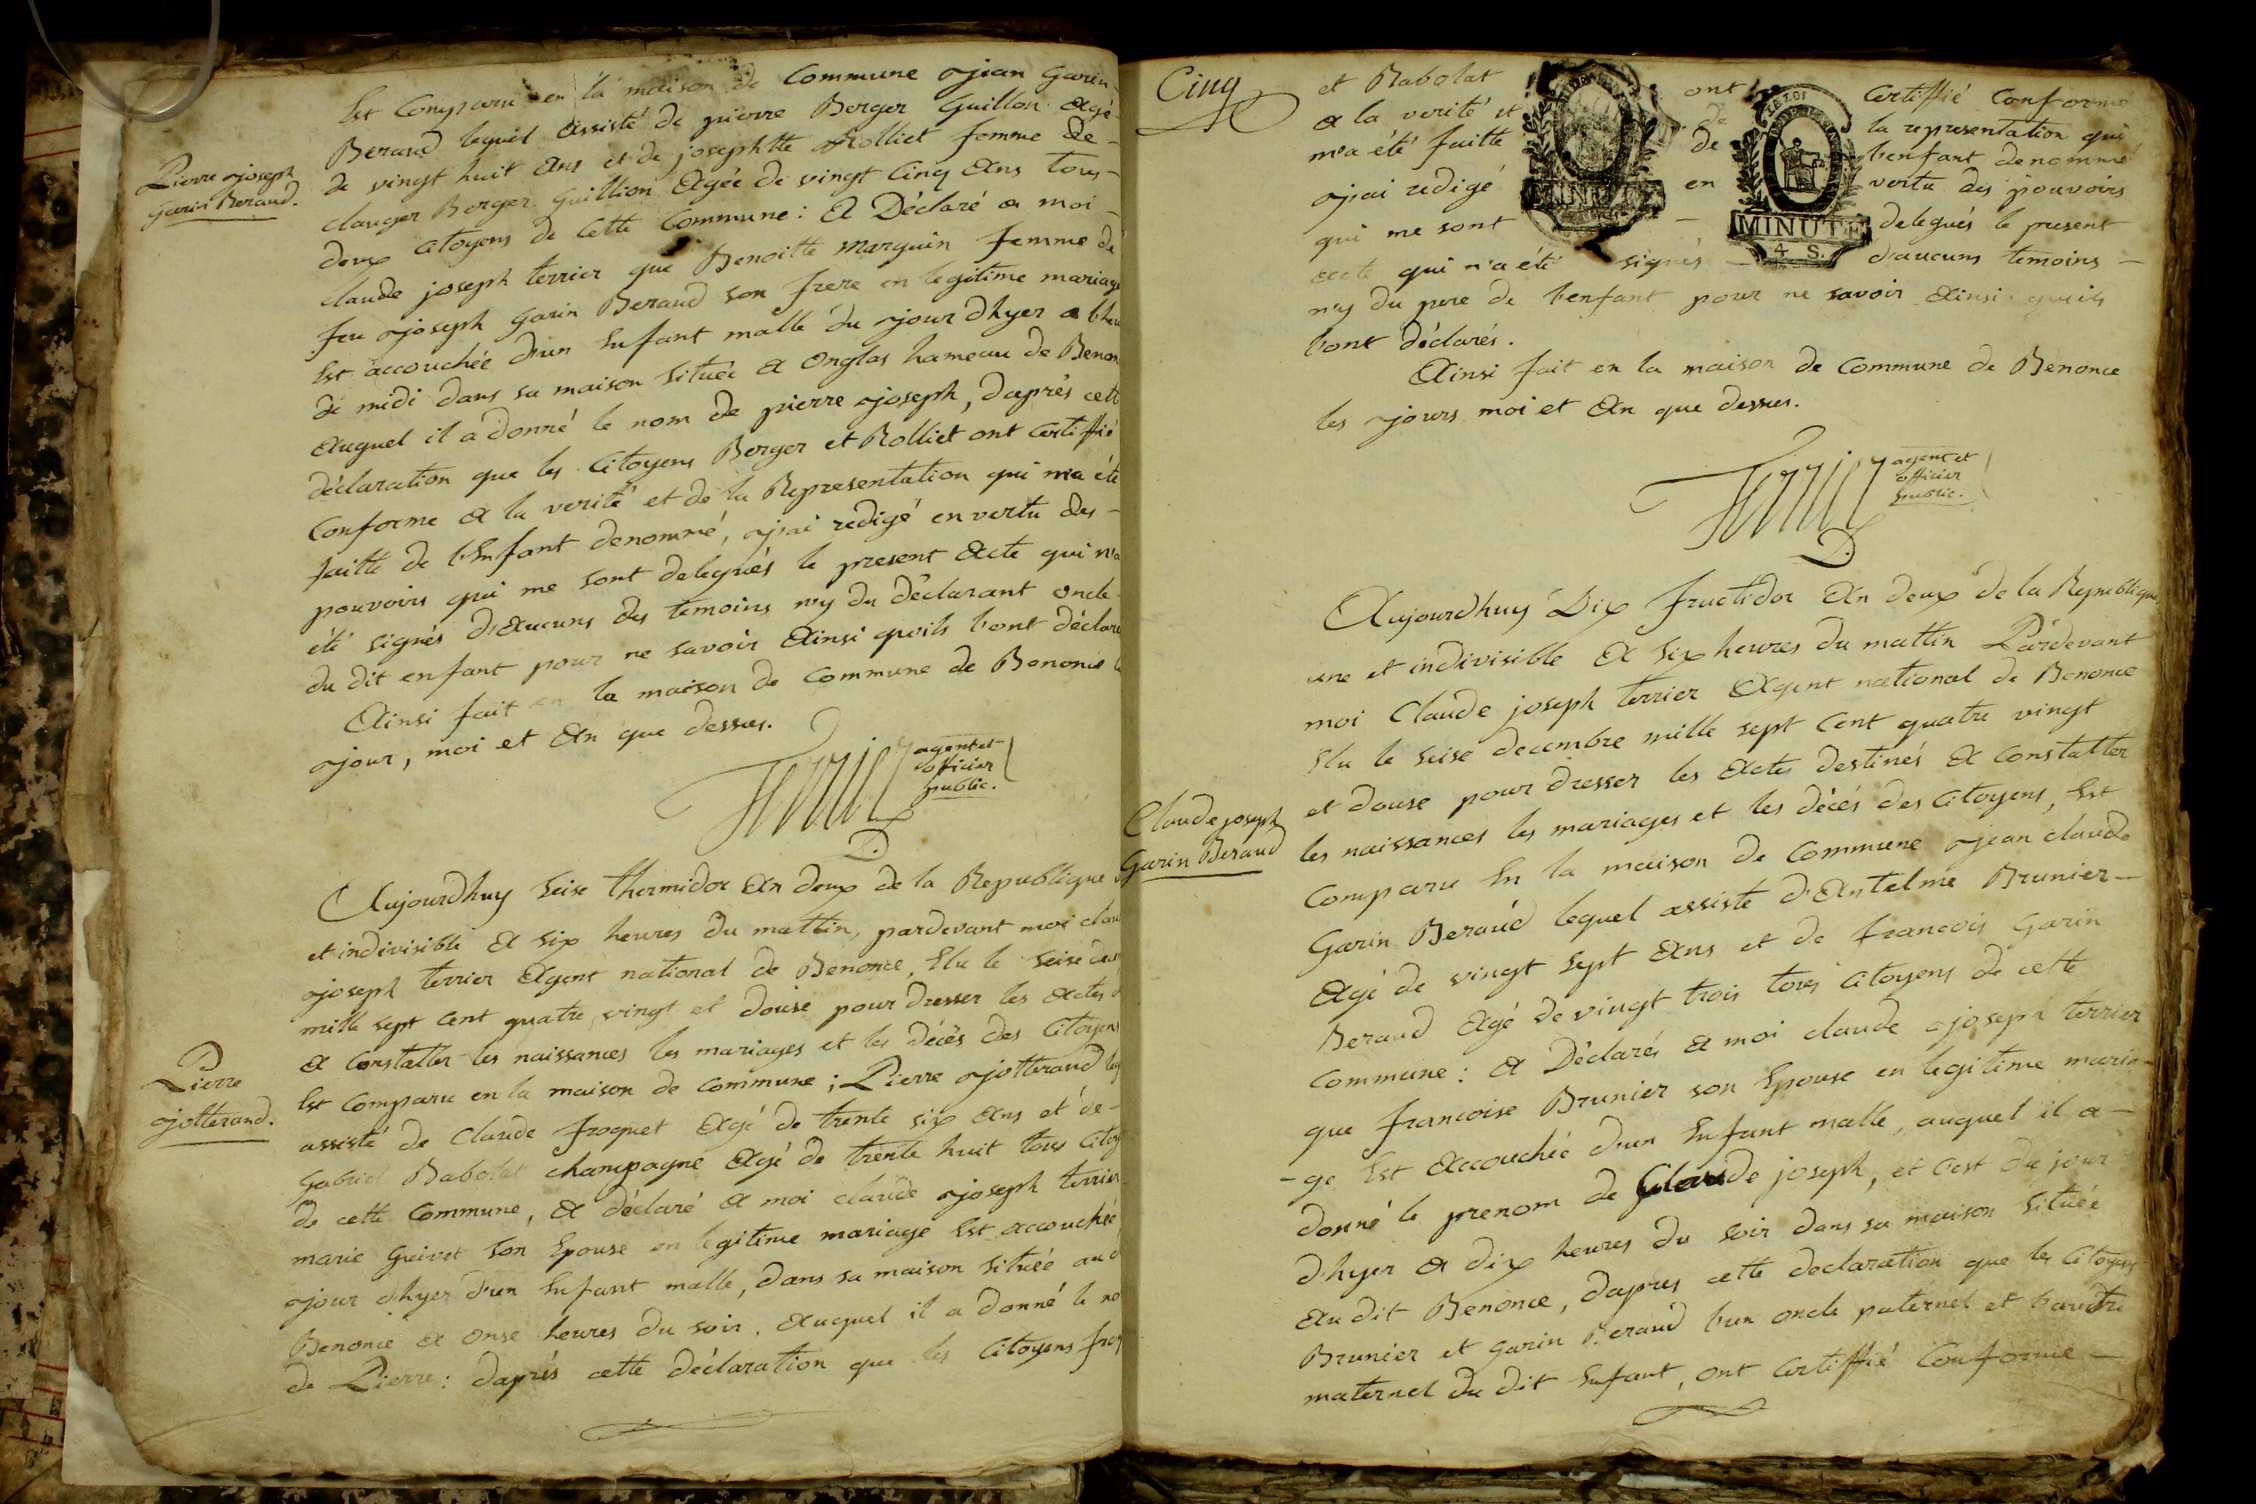 Est Comparu en la maison de Commune jean Garin
Beraud lequel assisté de pierre Berger Guillon agé
de vingt huit ans et de josephtte Rolliet femme de
Pierre joseph
Garin Beraud.
clauger Berger Guillion agée de vingt Cinq ans tous
deux Citoyens de Cette Commune : a Déclaré a moi
claude joseph terrier que Benoitte Marguin femme de
feu joseph Garin Beraud son frere en legitime mariage
Est accouchée d'un Enfant malle du jour d'hyer a l'heu
de midi dans sa maison située a Onglas hameau de Benon
auquel il a donné le nom de pierre joseph, daprés cett
déclaration que les Citoyens Berger et Rolliet ont Certiffié
Conforme a la verité et de la Representation qui m'a été
faitte de l'Enfant denommé, j'ai redigé en vertu des
pouvoirs qui me sont delegués le present acte qui n'a
été signés d'aucuns des temoins n'y du déclarant oncle
du dit enfant pour ne savoir ainsi qu'ils l'ont déclaré
Ainsi fait en la maison de Commune de Benonce le
jour, moi et an que dessus.
Terrier agent et
officier
public.
Aujourdhuy Seise thermidor an deux de la Republique
et indivisible a six heures du mattin, pardevant moi clau
joseph terrier agent national de Benonce, Elu le Seise dece
mille sept Cent quatre vingt et douse pour dresser les actes
a Constatter les naissances les mariages et les décés des Citoyens
Pierre
jotterand.
Est Comparu en la maison de Commune ; Pierre jotterand leq
assisté de Claude froquet agé de trente six ans et de
Gabriel Rabolat champagne agé de trente huit tous Citoy
de cette Commune, a déclaré a moi claude joseph terrier
marie Guivet son Epouse en legitime mariage Est accouchée
jour d'hyer d'un Enfant malle, dans sa maison située aud
Benonce a onse heures du soir, auquel il a donné le no
de Pierre : daprés cette déclaration que les Citoyens froq
Cinq
et Rabolat ont Certiffié Conforme
a la verité et de la representation qui
m'a été faitte de l'enfant denommé
j'ai redigé en vertu des pouvoirs
qui me sont delegués le present
acte qui n'a été signés d'aucuns temoins
n'y du pere de l'enfant pour ne savoir ainsi qu'ils
l'ont déclarés.
LA LOI
MINUTE
4 S.
Ainsi fait en la maison de Commune de Benonce
les jours moi et an que dessus.
Terrier agent et
officier
public.
Aujourdhuy Dix fructidor an deux de la Republique
une et indivisible a six heures du mattin Pardevant
moi Claude joseph terrier agent national de Benonce
Elu le Seise decembre mille sept Cent quatre vingt
et douse pour dresser les actes destinés a Constatter
Claude joseph
Garin Beraud
les naissances les mariages et les décés des Citoyens, Est
Comparu En la maison de Commune jean claude
Garin Beraud lequel assisté d'antelme Brunier
agé de vingt sept ans et de francois Garin
Beraud agé de vingt trois tous Citoyens de cette
Commune : a Déclarés a moi claude joseph terrier
que francoise Brunier son Epouse en legitime maria-
-ge Est accouchée d'un Enfant malle, auquel il a
donné le prenom de Claude joseph, et c'est du jour
d'hyer a dix heures du soir dans sa maison située
au dit Benonce, daprés cette declaration que les Citoyens
Brunier et Garin Beraud l'un oncle paternel et l'autre
maternel du dit Enfant, ont Certiffié Conforme